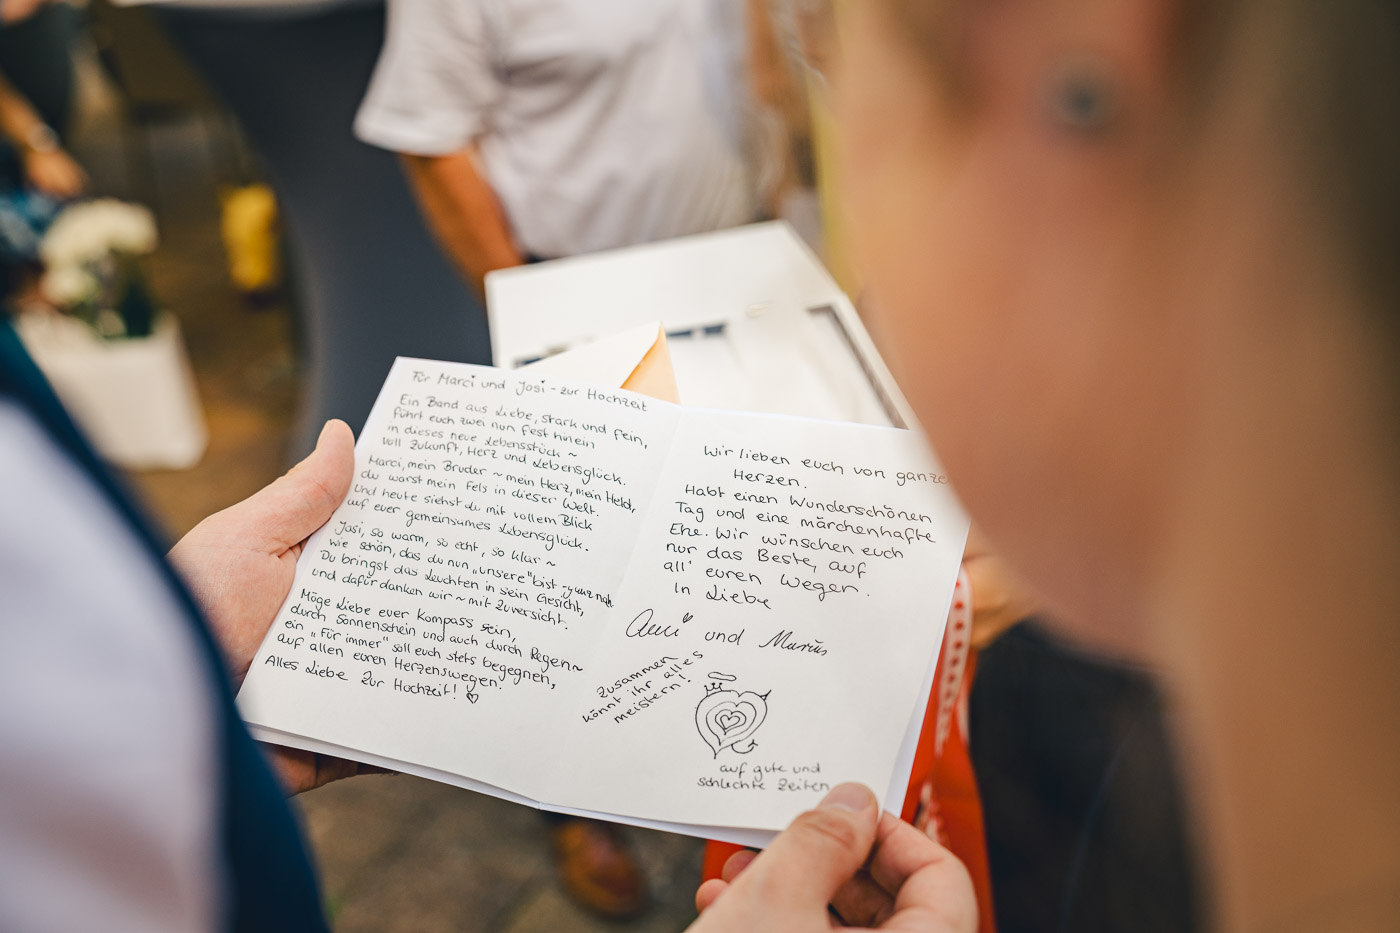 Für Marci und Josi - zur Hochzeit
Ein Band aus Liebe, stark und fein,
führt euch zwei nun fest hinein
in dieses neue Lebensstück ~
voll Zukunft, Herz und Lebensglück.
Marci, mein Bruder ~ mein Herz, mein Held,
du warst mein Fels in dieser Welt.
Und heute siehst du mit vollem Blick
auf euer gemeinsames Lebensglück.
Josi, so warm, so echt, so klar ~
wie schön, das du nun „unsere" bist - ganz nah.
Du bringst das Leuchten in sein Gesicht,
und dafür danken wir ~ mit Zuversicht.
Möge Liebe euer Kompass sein,
durch Sonnenschein und auch durch Regen ~
ein „Für immer" soll euch stets begegnen,
auf allen euren Herzenswegen.
Alles Liebe zur Hochzeit! ♡
Wir lieben euch von ganze
Herzen.
Habt einen Wunderschönen
Tag und eine märchenhafte
Ehe. Wir wünschen euch
nur das Beste, auf
all' euren Wegen.
In Liebe
und Marius
Zusammen
könnt ihr alles
meistern!
auf gute und
schlechte Zeiten